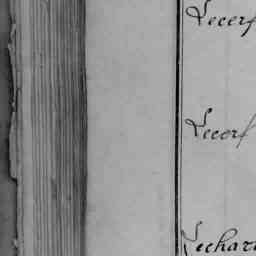 Lecerf
Lecerf
Lechar